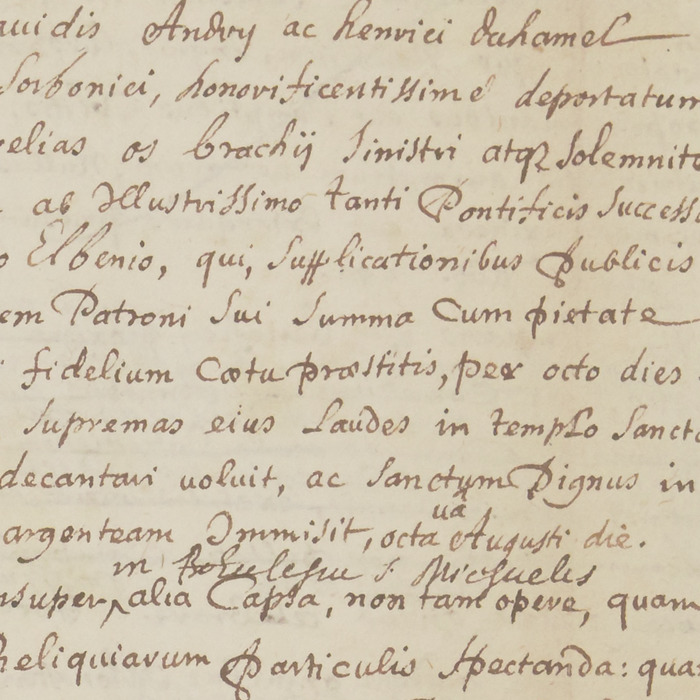 auidis Andry ac henrici duhamel
Sorbonici, honorificentissimé deportatum
relias os brachij sinistri atq3 solemnite
ab Illustrissimo tanti Pontificis Successo
o Elbenio, qui, supplicationibus publicis
em Patroni sui summa cum pietate
fidelium Cœtu præstitis, per octo dies
supremas eius Laudes in templo Sancto
decantari voluit, ac sanctum Pignus in
ua
argenteam Immisit, octa Augusti die.
in s. Michaelis
nsuper alia Capsa, non tam opere, quam
Reliquiarum particulis spectanda: qua